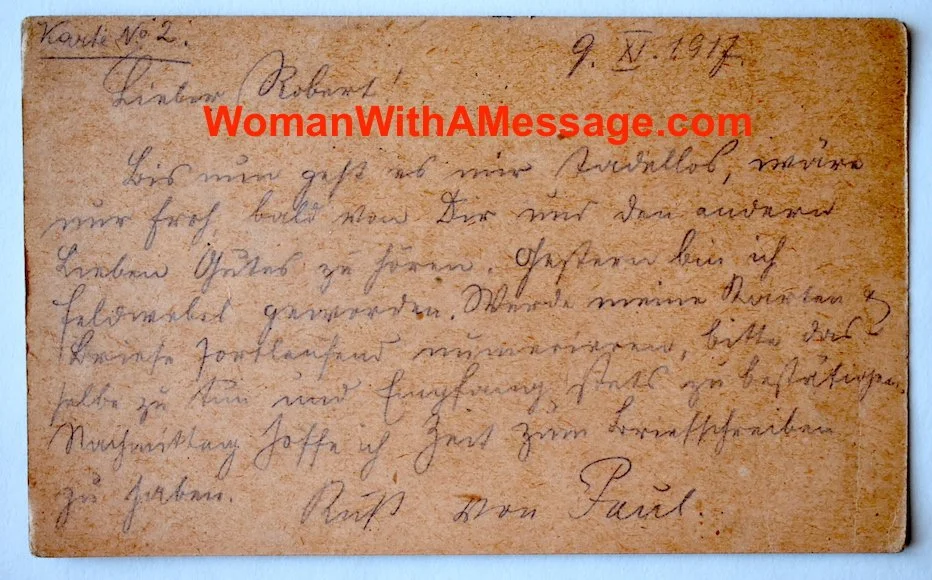 Karte No 2.
9. XI. 1917.
Lieber Robert!
WomanWithAMessage.com
Bis nun geht es mir tadellos, wäre
nur froh, bald von Dir und den andern
Lieben Gutes zu hören. Gestern bin ich
Feldwebel geworden. Werde meine Karten &
Briefe fortlaufend numerieren, bitte das-
selbe zu tun und Empfang stets zu bestätigen.
Nachmittag hoffe ich Zeit zum Briefschreiben
zu haben.
Kuß von Paul.